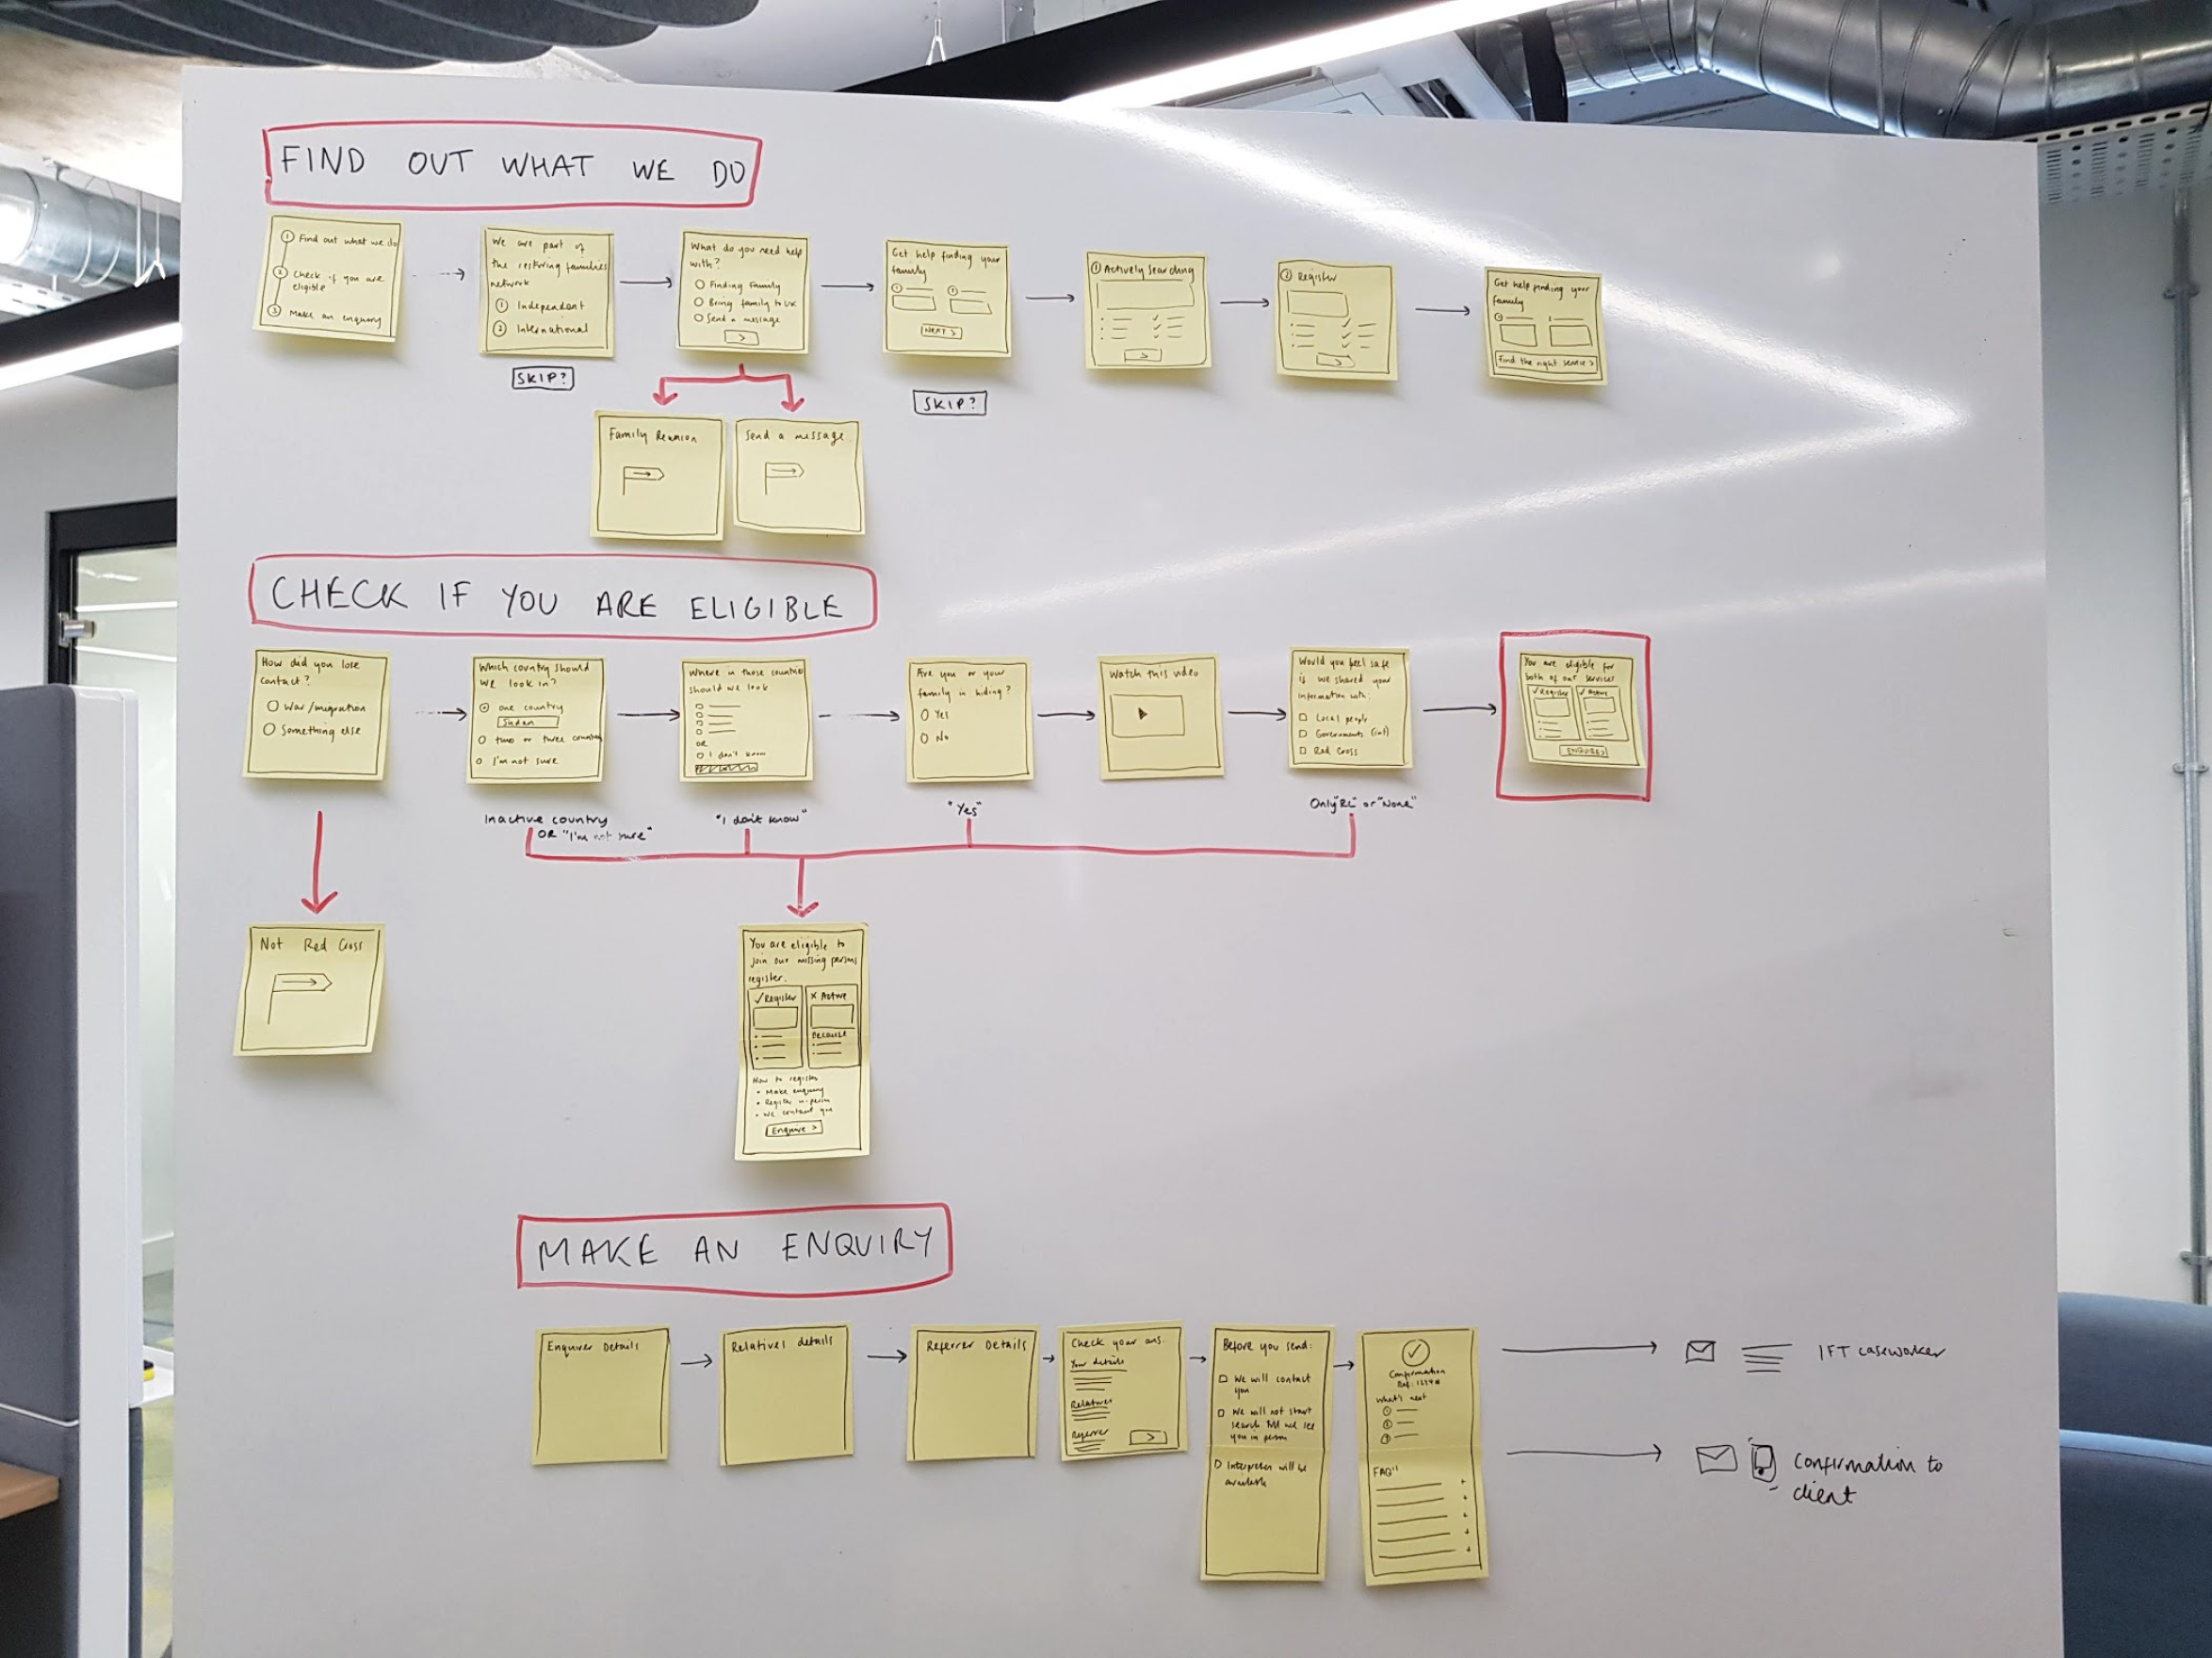 FIND OUT WHAT WE DO
1 Find out what we do
2 Check if you are
eligible
3 Make an enquiry
We are part of
the restoring families
network
1 Independent
2 International
SKIP?
What do you need help
with?
Finding Family
Bring family to UK
Send a message
>
Family Reunion
Send a message
Get help finding your
family
NEXT >
SKIP?
1 Actively Searching
>
2 Register
>
Get help finding your
family
Find the right service >
CHECK IF YOU ARE ELIGIBLE
How did you lose
contact?
War/migration
Something else
Not Red Cross
Which country should
we look in?
one country
Sudan
two or three countries
I'm not sure
Inactive country
OR "I'm not sure"
Where in those countries
should we look
OR
I don't know
"I don't know"
Are you or your
family in hiding?
Yes
No
"Yes"
Watch this video
Would you feel safe
if we shared your
information with:
Local people
Governments (inf)
Red Cross
Only "RC" or "None"
You are eligible for
both of our services
✓ Register ✓ Active
ENQUIRE >
You are eligible to
join our missing persons
register.
✓ Register X Active
Because
How to register
• Make enquiry
• Register in-person
• We contact you
Enquire >
MAKE AN ENQUIRY
Enquirer Details
Relatives details
Referrer Details
Check your ans.
Your details
Relatives
Referrer
>
Before you send:
We will contact
you
We will not start
search till we see
you in person
Interpreter will be
available
Confirmation
What's next
1
2
3
FAQ
IFT caseworker
Confirmation to
client